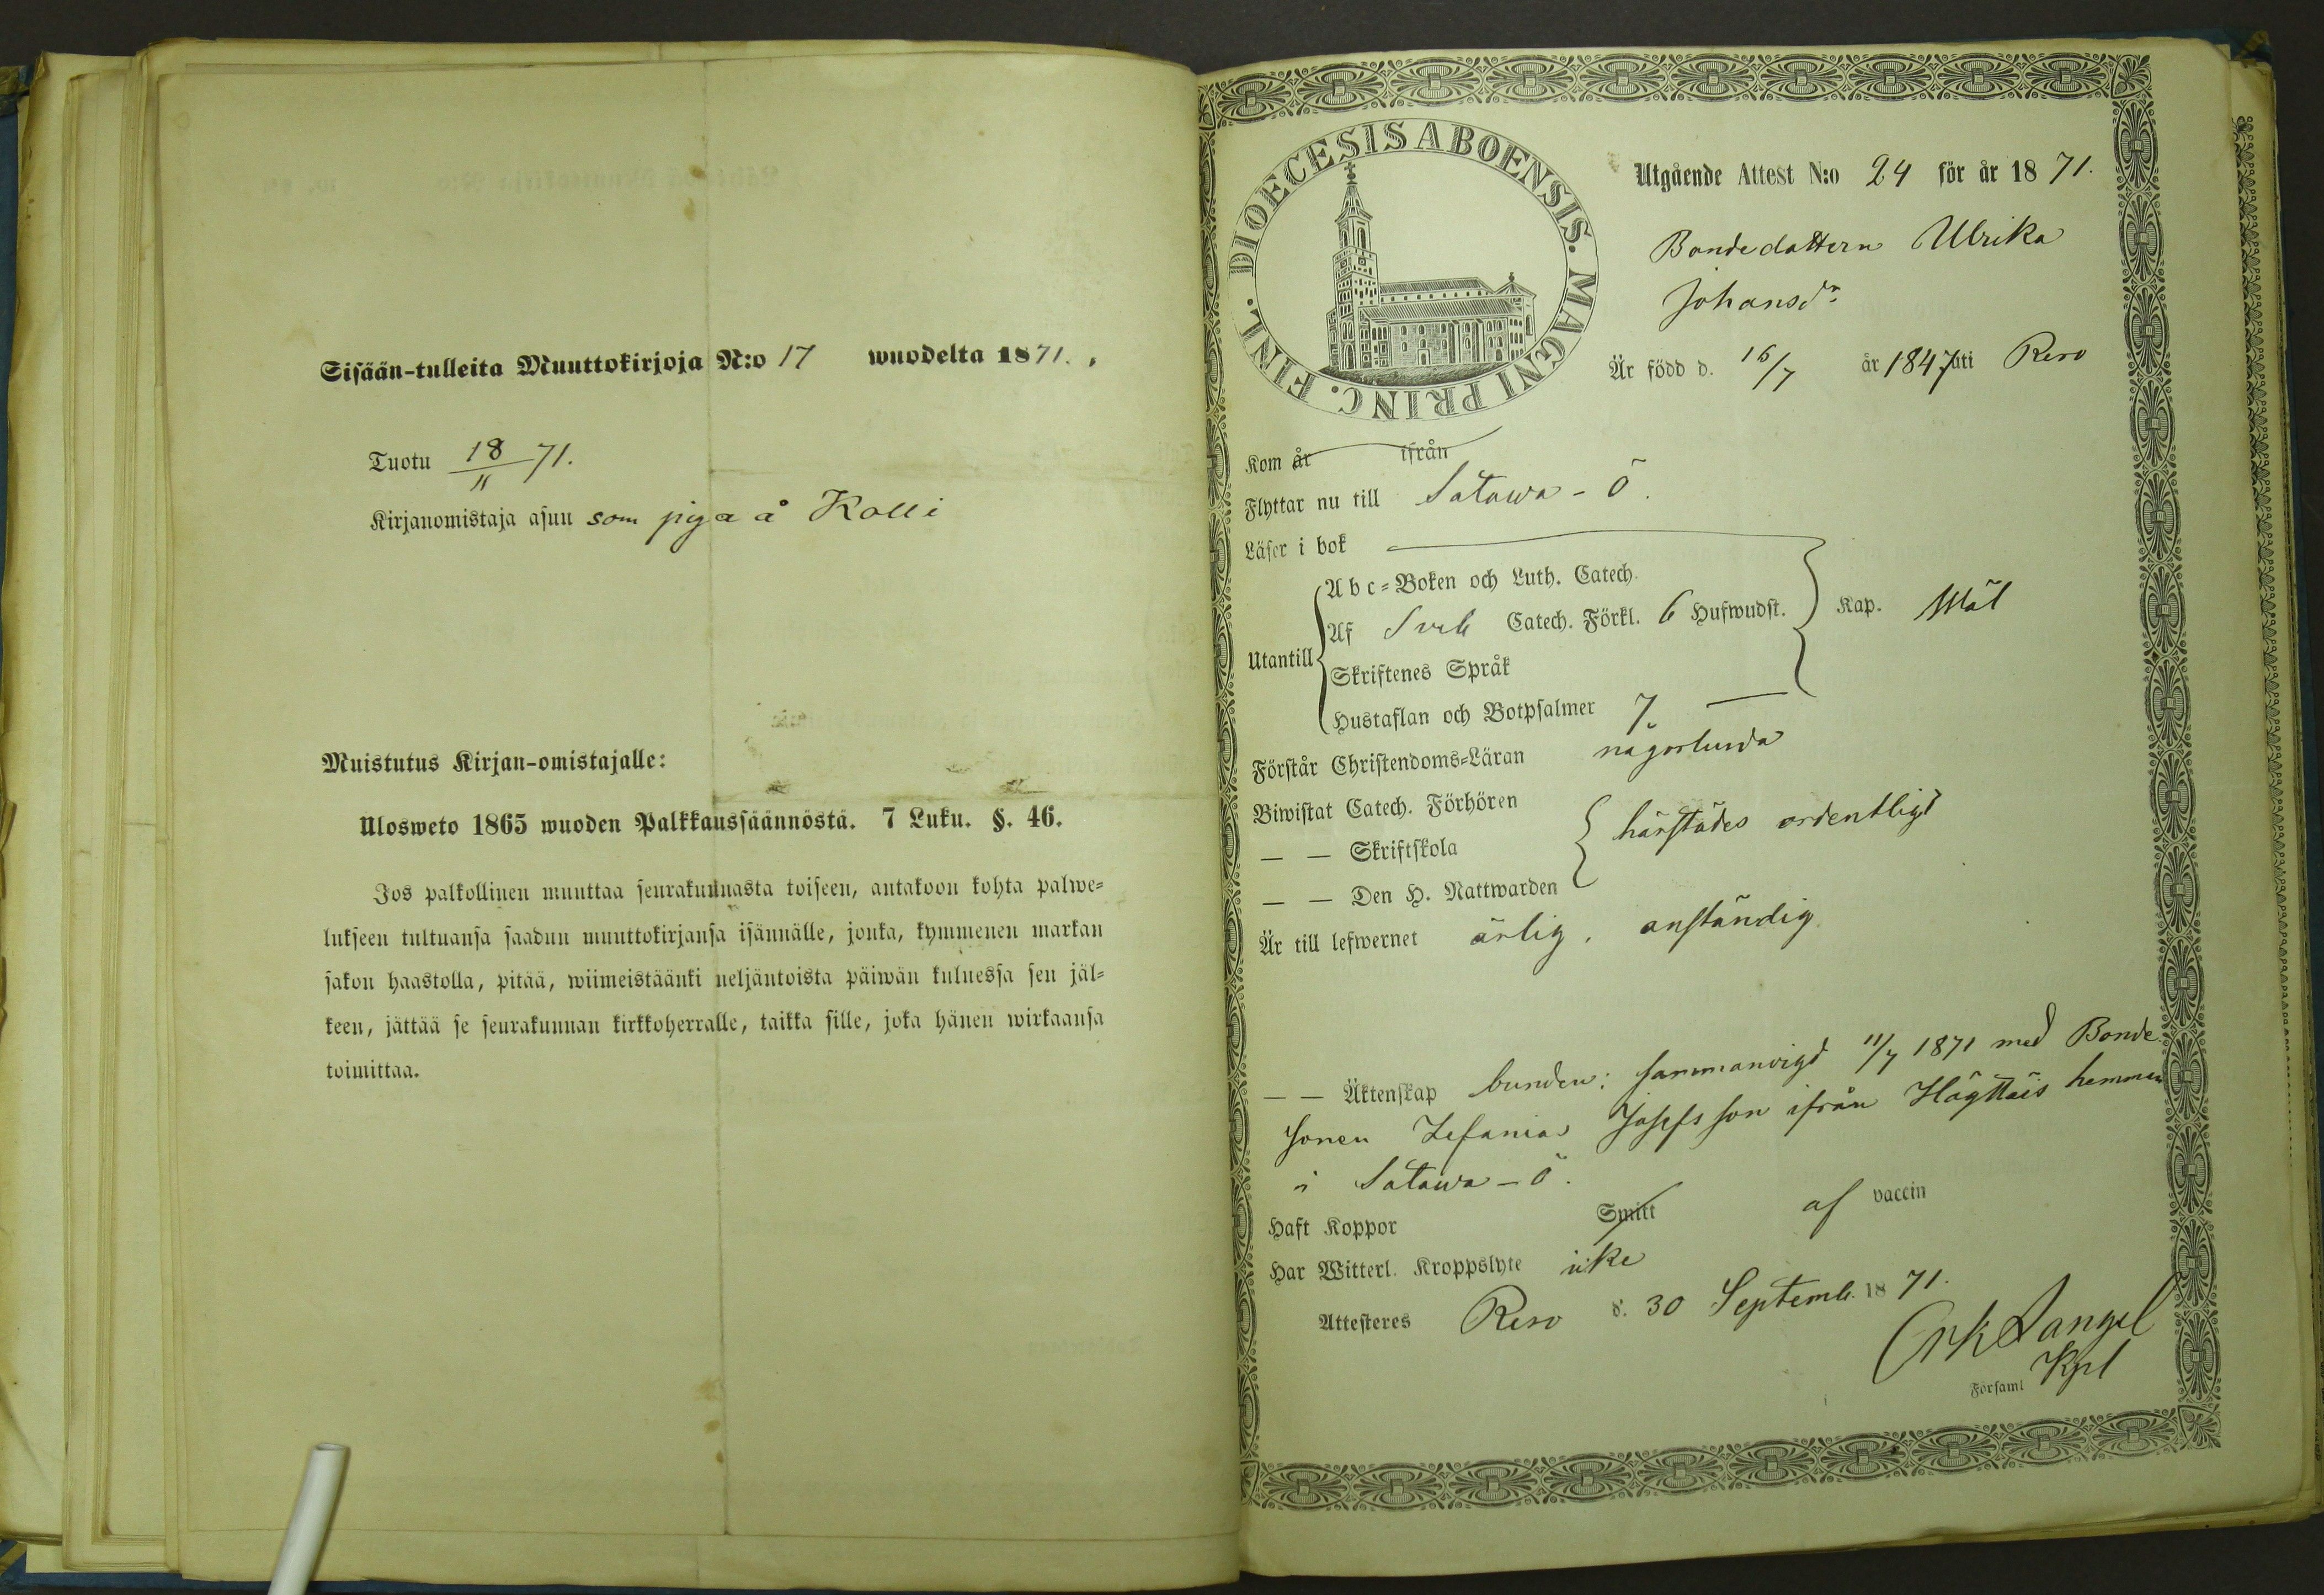 Sisään-tulleita Muuttokirjoja N:o 17 wuodelta 1871.
Tuotu 18/11 71.
Kirjanomistaja asuu som piga å Kolli
Muistutus Kirjan-omistajalle:
Ulosweto 1865 wuoden Palkkaussäännöstä. 7 Luku. §. 46.
Jos palkollinen muuttaa seurakunnasta toiseen, antakoon kohta palwe-
lukseen tultuansa saadun muuttokirjansa isännälle, jonka, kymmenen markan
sakon haastolla, pitää, wiimeistäänki neljäntoista päiwän kuluessa sen jäl-
keen, jättää se seurakunnan kirkkoherralle, taikka sille, joka hänen wirkaansa
toimittaa.
DIOECESIS ABOENSIS. MAGNI PRINC. FINL.
Utgående Attest N:o 24 för år 1871.
Bondedottern Ulrika
Johansdr
Är född d. 16/7 år 1847 uti Reso
Kom år ifrån
Flyttar nu till Satawa-Ö.
Läser i bok
Utantill
Abc-Boken och Luth. Catech.
Af Sveb Catech. Förkl. 6 Hufwudst. Kap. Mål
Skriftenes Språk
Hustaflan och Botpsalmer 7
Förstår Christendoms-Läran någorlunda
Biwistat Catech. Förhören
— — Skriftskola härstädes ordentligt
— — Den H. Nattwarden
Är till lefwernet ärlig, anständig
— — Äktenskap bunden: sammanvigd 11/7 1871 med Bonde
sonen Zefanias Josefsson ifrån Högttäis hemman
i Satawa-Ö.
Haft Koppor Smitt af vaccin
Har Witterl. Kroppslyte icke
Attesteres Reso d. 30 Septemb. 1871.
Langel
Församl Kpl